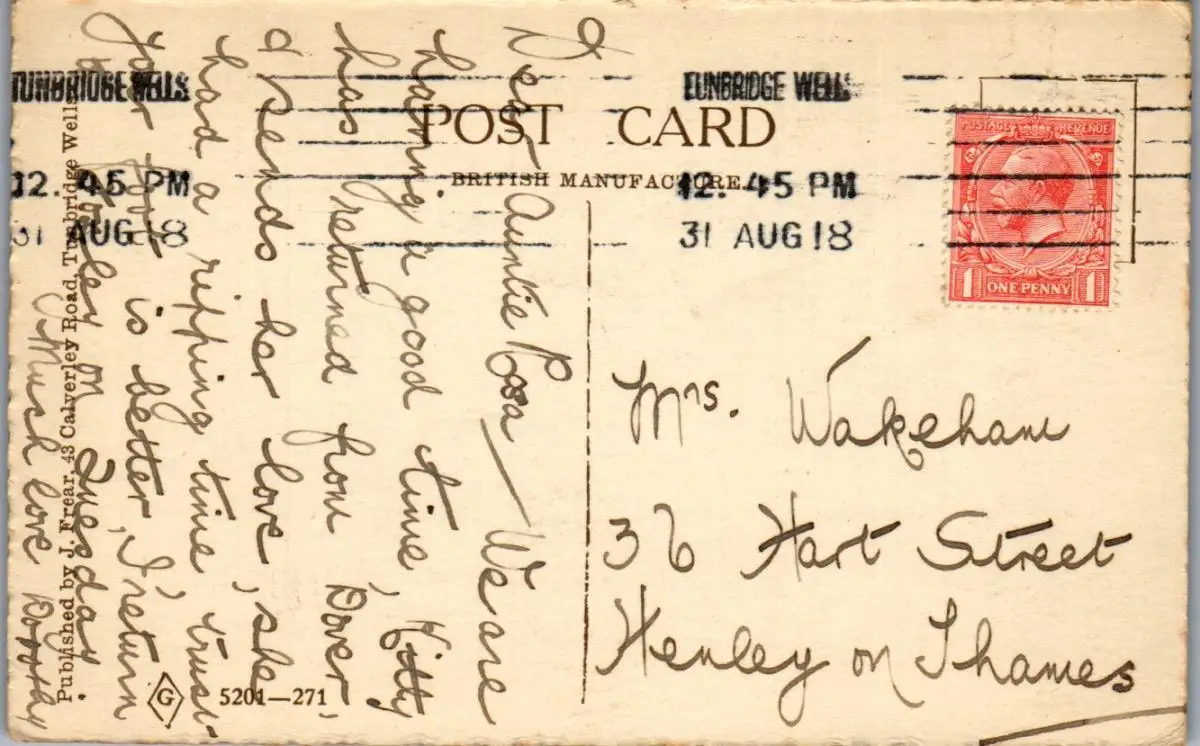 POST CARD
BRITISH MANUFACTURE.
TUNBRIDGE WELLS
12.45 PM
31 AUG 18
TUNBRIDGE WELLS
12.45 PM
31 AUG 18
POSTAGE REVENUE
1 ONE PENNY 1
Dear Auntie Rosa / We are
having a good time, Kitty
has returned from Dover
& sends her love, she
had a ripping time, trust
your is better, I return
on Tuesday.
Much love Dorothy
Mrs. Wakeham
36 Hart Street
Henley on Thames
Published by J. Frear. 43 Calverley Road, Tunbridge Wells
G 5201—271